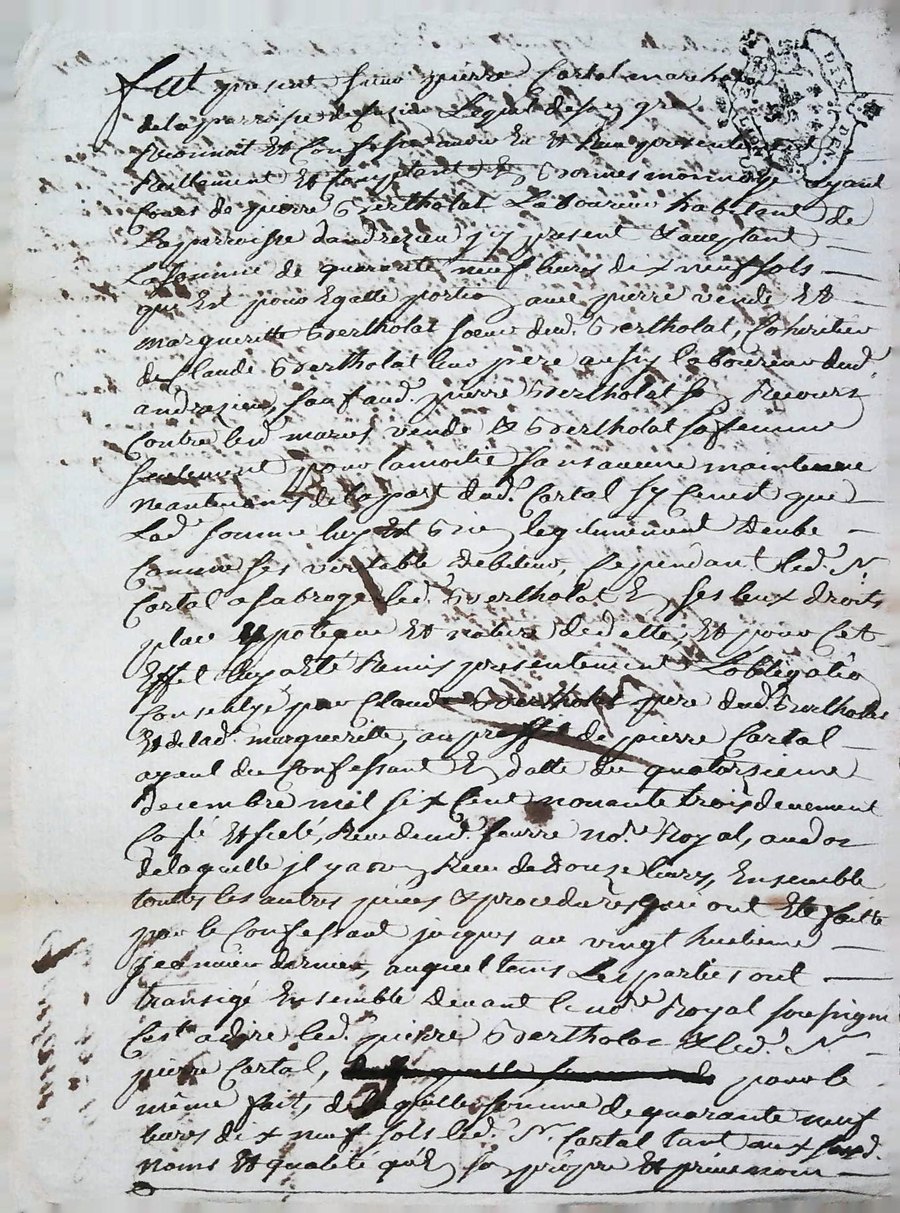 fut present sieur pierre Cartal marchand
de la parroisse de Lequel de son gre
reconnoit et Confesse avoir eu et Receu presentement
reallement et Comptant En Bonnes monnoye ayant
Cours de pierre Bertholat Laboureur habitant de
La parroisse dandrezieu icy present & aceptant
La somme de quarante neuf livres dix neuf sols
qui Est pour Egalle portion avec pierre vende Et
margueritte Bertholat soeur dud. Bertholat, Coheritier
de Claude Bertholat leur pere aussy laboureur dud.
andrezieu, sauf aud. pierre Bertholat son Recours
Contre led. maries vende & Bertholat sa femme
seulement pour la moitié sans aucune maintenue
neantmoins de la part dud. Cartal sy Ce nest que
Lad. somme luy Est Bien legitimement Deube
Comme ses veritable debiteur, Ce pendant led. sr.
Cartal a subrogé led. Bertholat En ses lieux droits
place ypoteque Et nature de debte, Et pour Cet
Effet luy a Eté Remis presentement Lobligation
Consentye par Claude Bertholat pere dud. Bertholat
Et de lad. margueritte, au proffit de pierre Cartal
ayeul du Confessant En datte du quatorsieme
Decembre mil six Cent nonante trois devement
Collé Et selé, Receu dud. faurre nore. Royal, au dos
de laquelle il y a un Receu de Douze livres, Ensemble
toutes les autres pieces & procedures qui ont Eté faitte
par le Confessant jusques au vingt huitieme
jeanvier dernier, auquel tems Les parties ont
transigé Ensemble devant le nore. Royal soussigné
Cest a dire led. pierre Bertholat & led. sr.
pierre Cartal, pour le
même fait, de laquelle somme de quarante neuf
livres dix neuf sols led. sr. Cartal tant aux susd.
noms Et qualité qu'En son propre Et privé nom